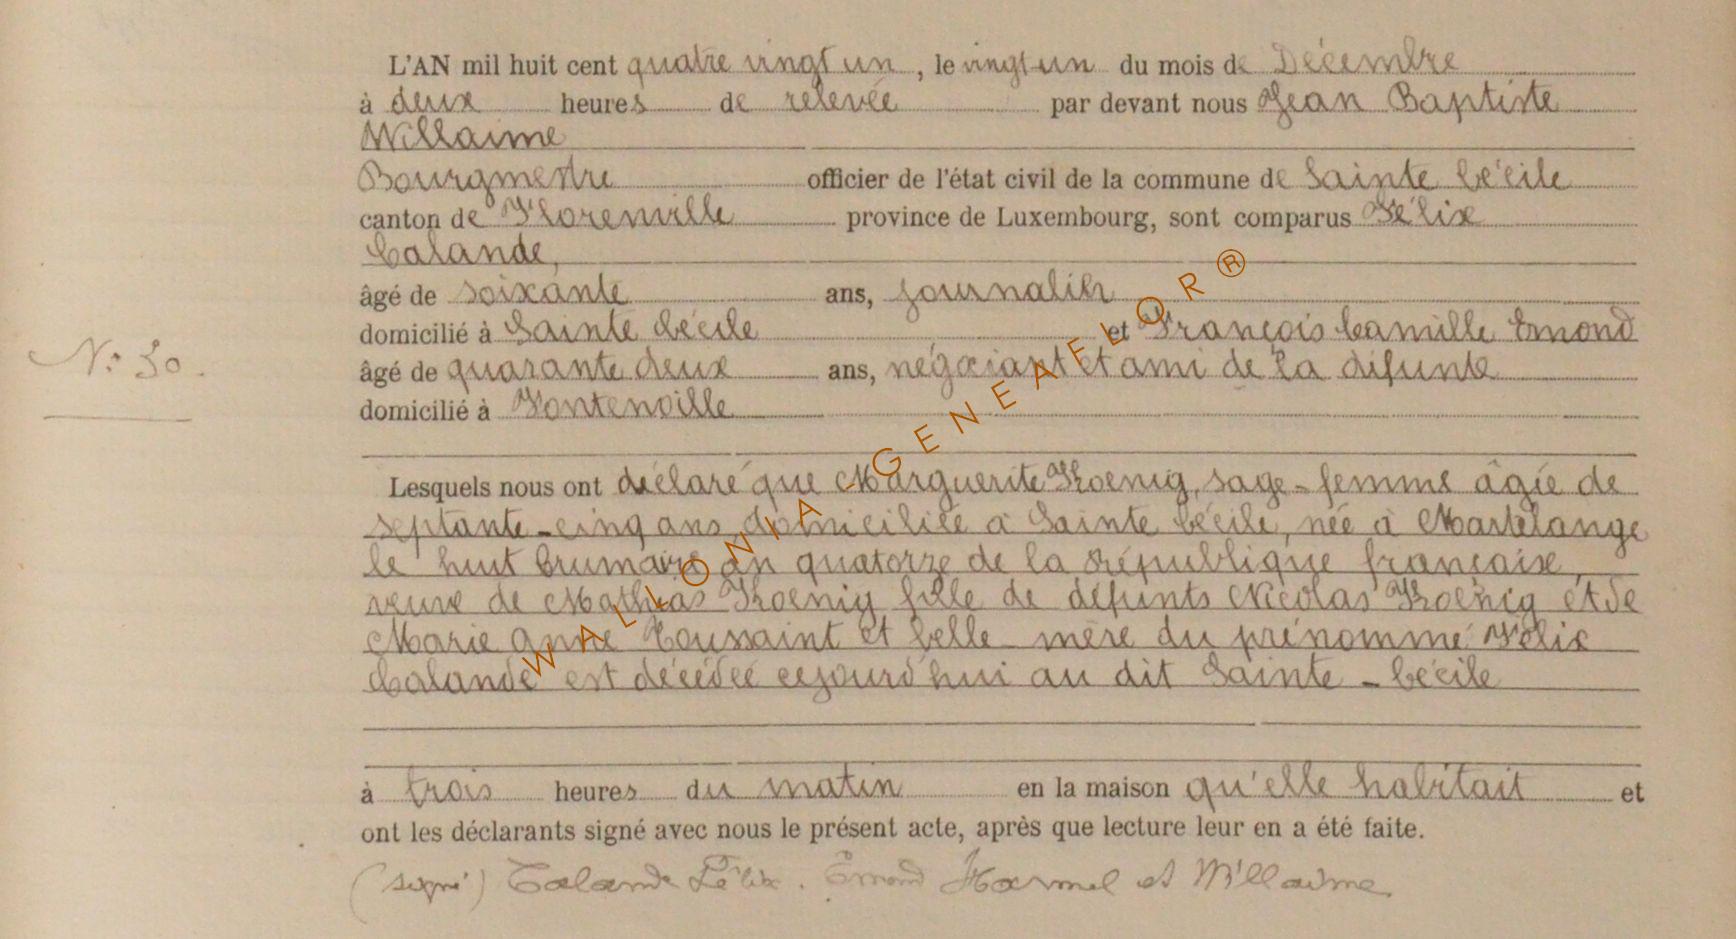 L'AN mil huit cent quatre vingt un, le vingt un du mois de Décembre
à deux heures de relevée par devant nous Jean Baptiste
Willaime
Bourgmestre officier de l'état civil de la commune de Sainte Cécile
canton de Florenville province de Luxembourg, sont comparus Félix
Calande,
âgé de soixante ans, journalier
domicilié à Sainte Cécile et François Camille Emond
âgé de quarante deux ans, négociant et ami de la défunte
domicilié à Fontenoille
N° 30.
Lesquels nous ont déclaré que Marguerite Koenig, sage-femme âgée de
septante-cinq ans, domiciliée à Sainte Cécile, née à Martelange
le huit brumaire an quatorze de la République française,
veuve de Mathias Koenig fille de défunts Nicolas Koenig et de
Marie Anne Toussaint et belle-mère du prénommé Félix
Calande est décédée cejourd'hui au dit Sainte-Cécile
à trois heures du matin en la maison qu'elle habitait et
ont les déclarants signé avec nous le présent acte, après que lecture leur en a été faite.
(signé) Calande Félix. Emond Harmel et Willaime
WALLONIA-GENEAFLOR®